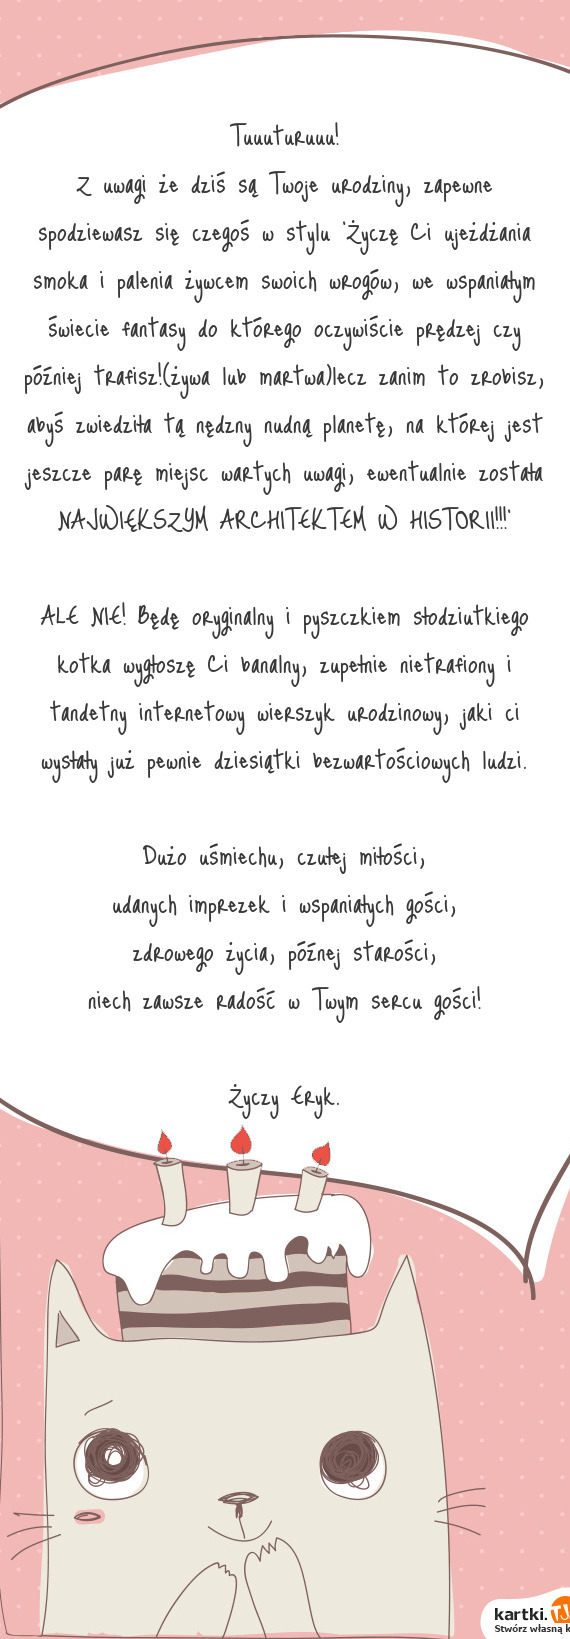 Tuuuturuuu!
Z uwagi że dziś są Twoje urodziny, zapewne
spodziewasz się czegoś w stylu 'Życzę Ci ujeżdżania
smoka i palenia żywcem swoich wrogów, we wspaniałym
świecie fantasy do którego oczywiście prędzej czy
później trafisz!(żywa lub martwa)lecz zanim to zrobisz,
abyś zwiedziła tą nędzny nudną planetę, na której jest
jeszcze parę miejsc wartych uwagi, ewentualnie została
NAJWIĘKSZYM ARCHITEKTEM W HISTORII!!!'
ALE NIE! Będę oryginalny i pyszczkiem słodziutkiego
kotka wygłoszę Ci banalny, zupełnie nietrafiony i
tandetny internetowy wierszyk urodzinowy, jaki ci
wysłały już pewnie dziesiątki bezwartościowych ludzi.
Dużo uśmiechu, czułej miłości,
udanych imprezek i wspaniałych gości,
zdrowego życia, późnej starości,
niech zawsze radość w Twym sercu gości!
Życzy Eryk.
kartki.TJ
Stwórz własną k